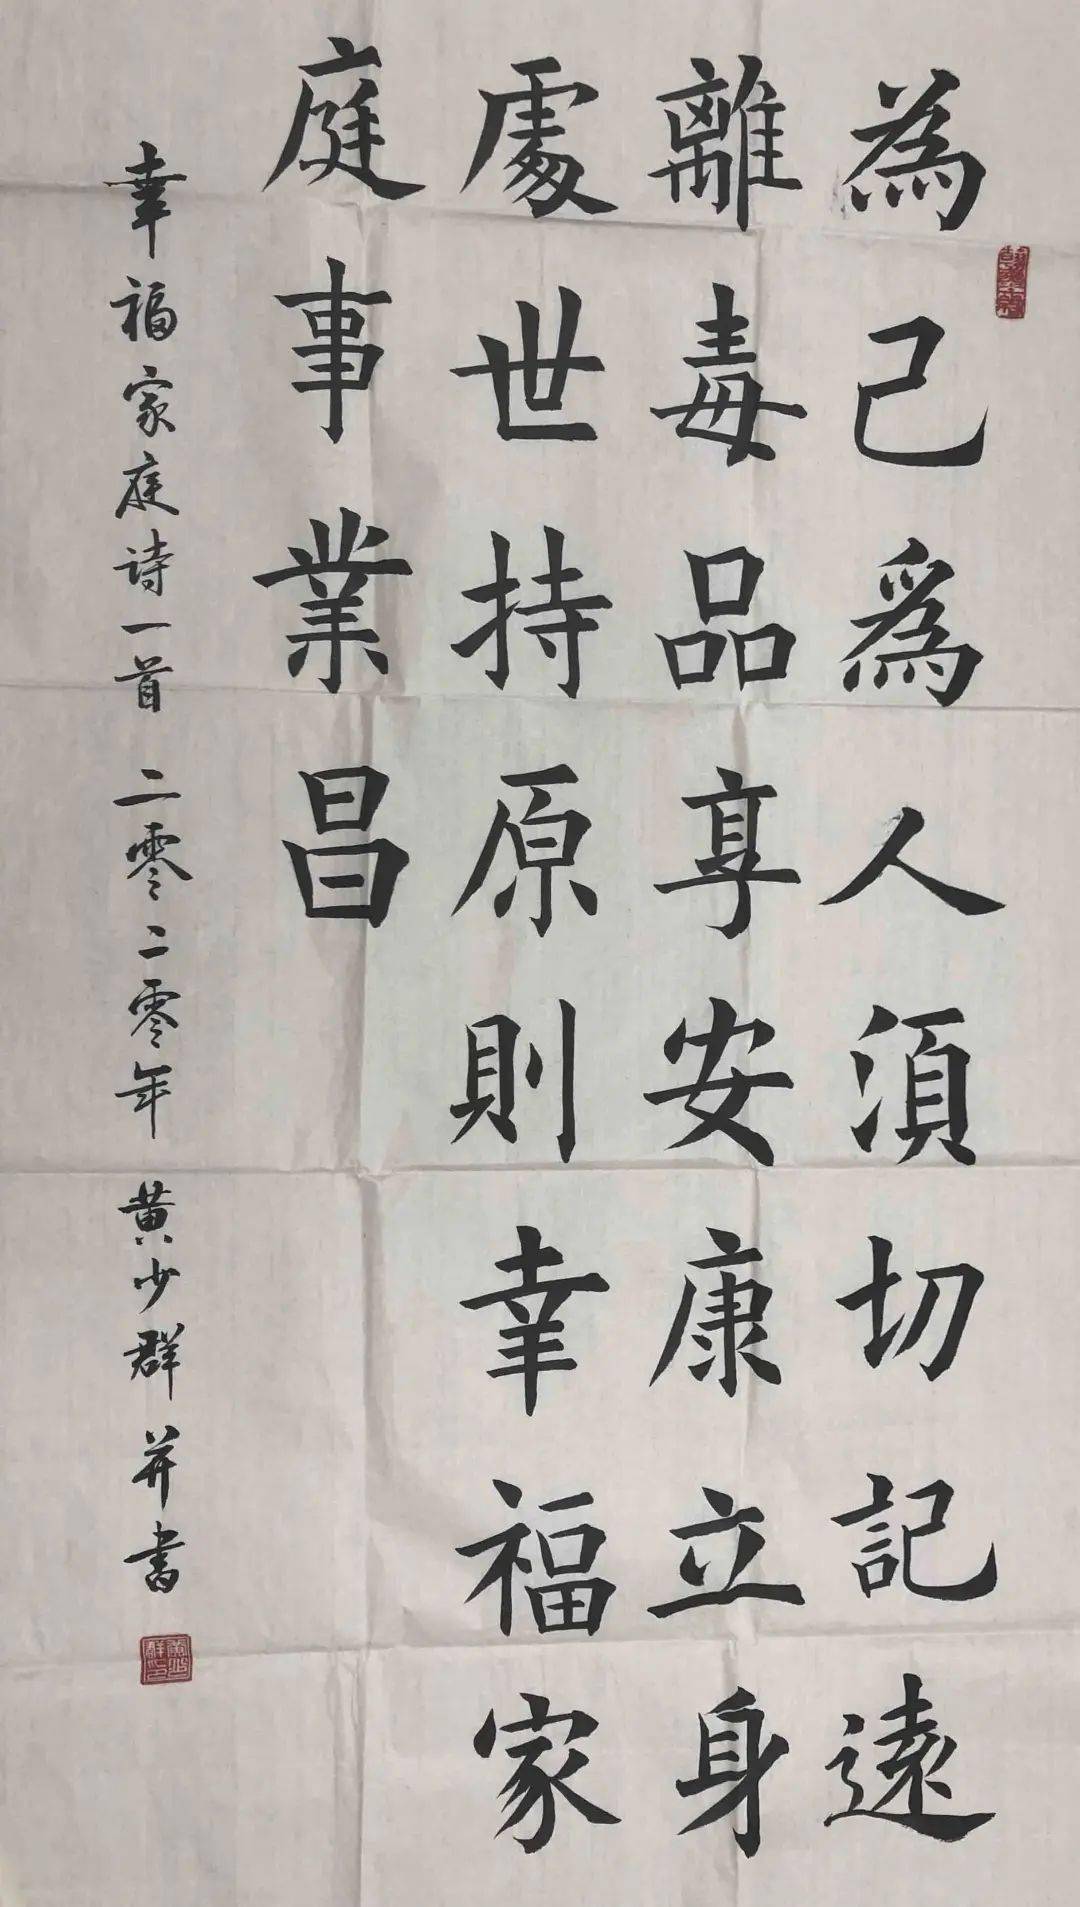 為己爲人須切記遠
離毒品享安康立身
處世持原則幸福家
庭事業昌
幸福家庭诗一首 二零二零年 黄少群并書